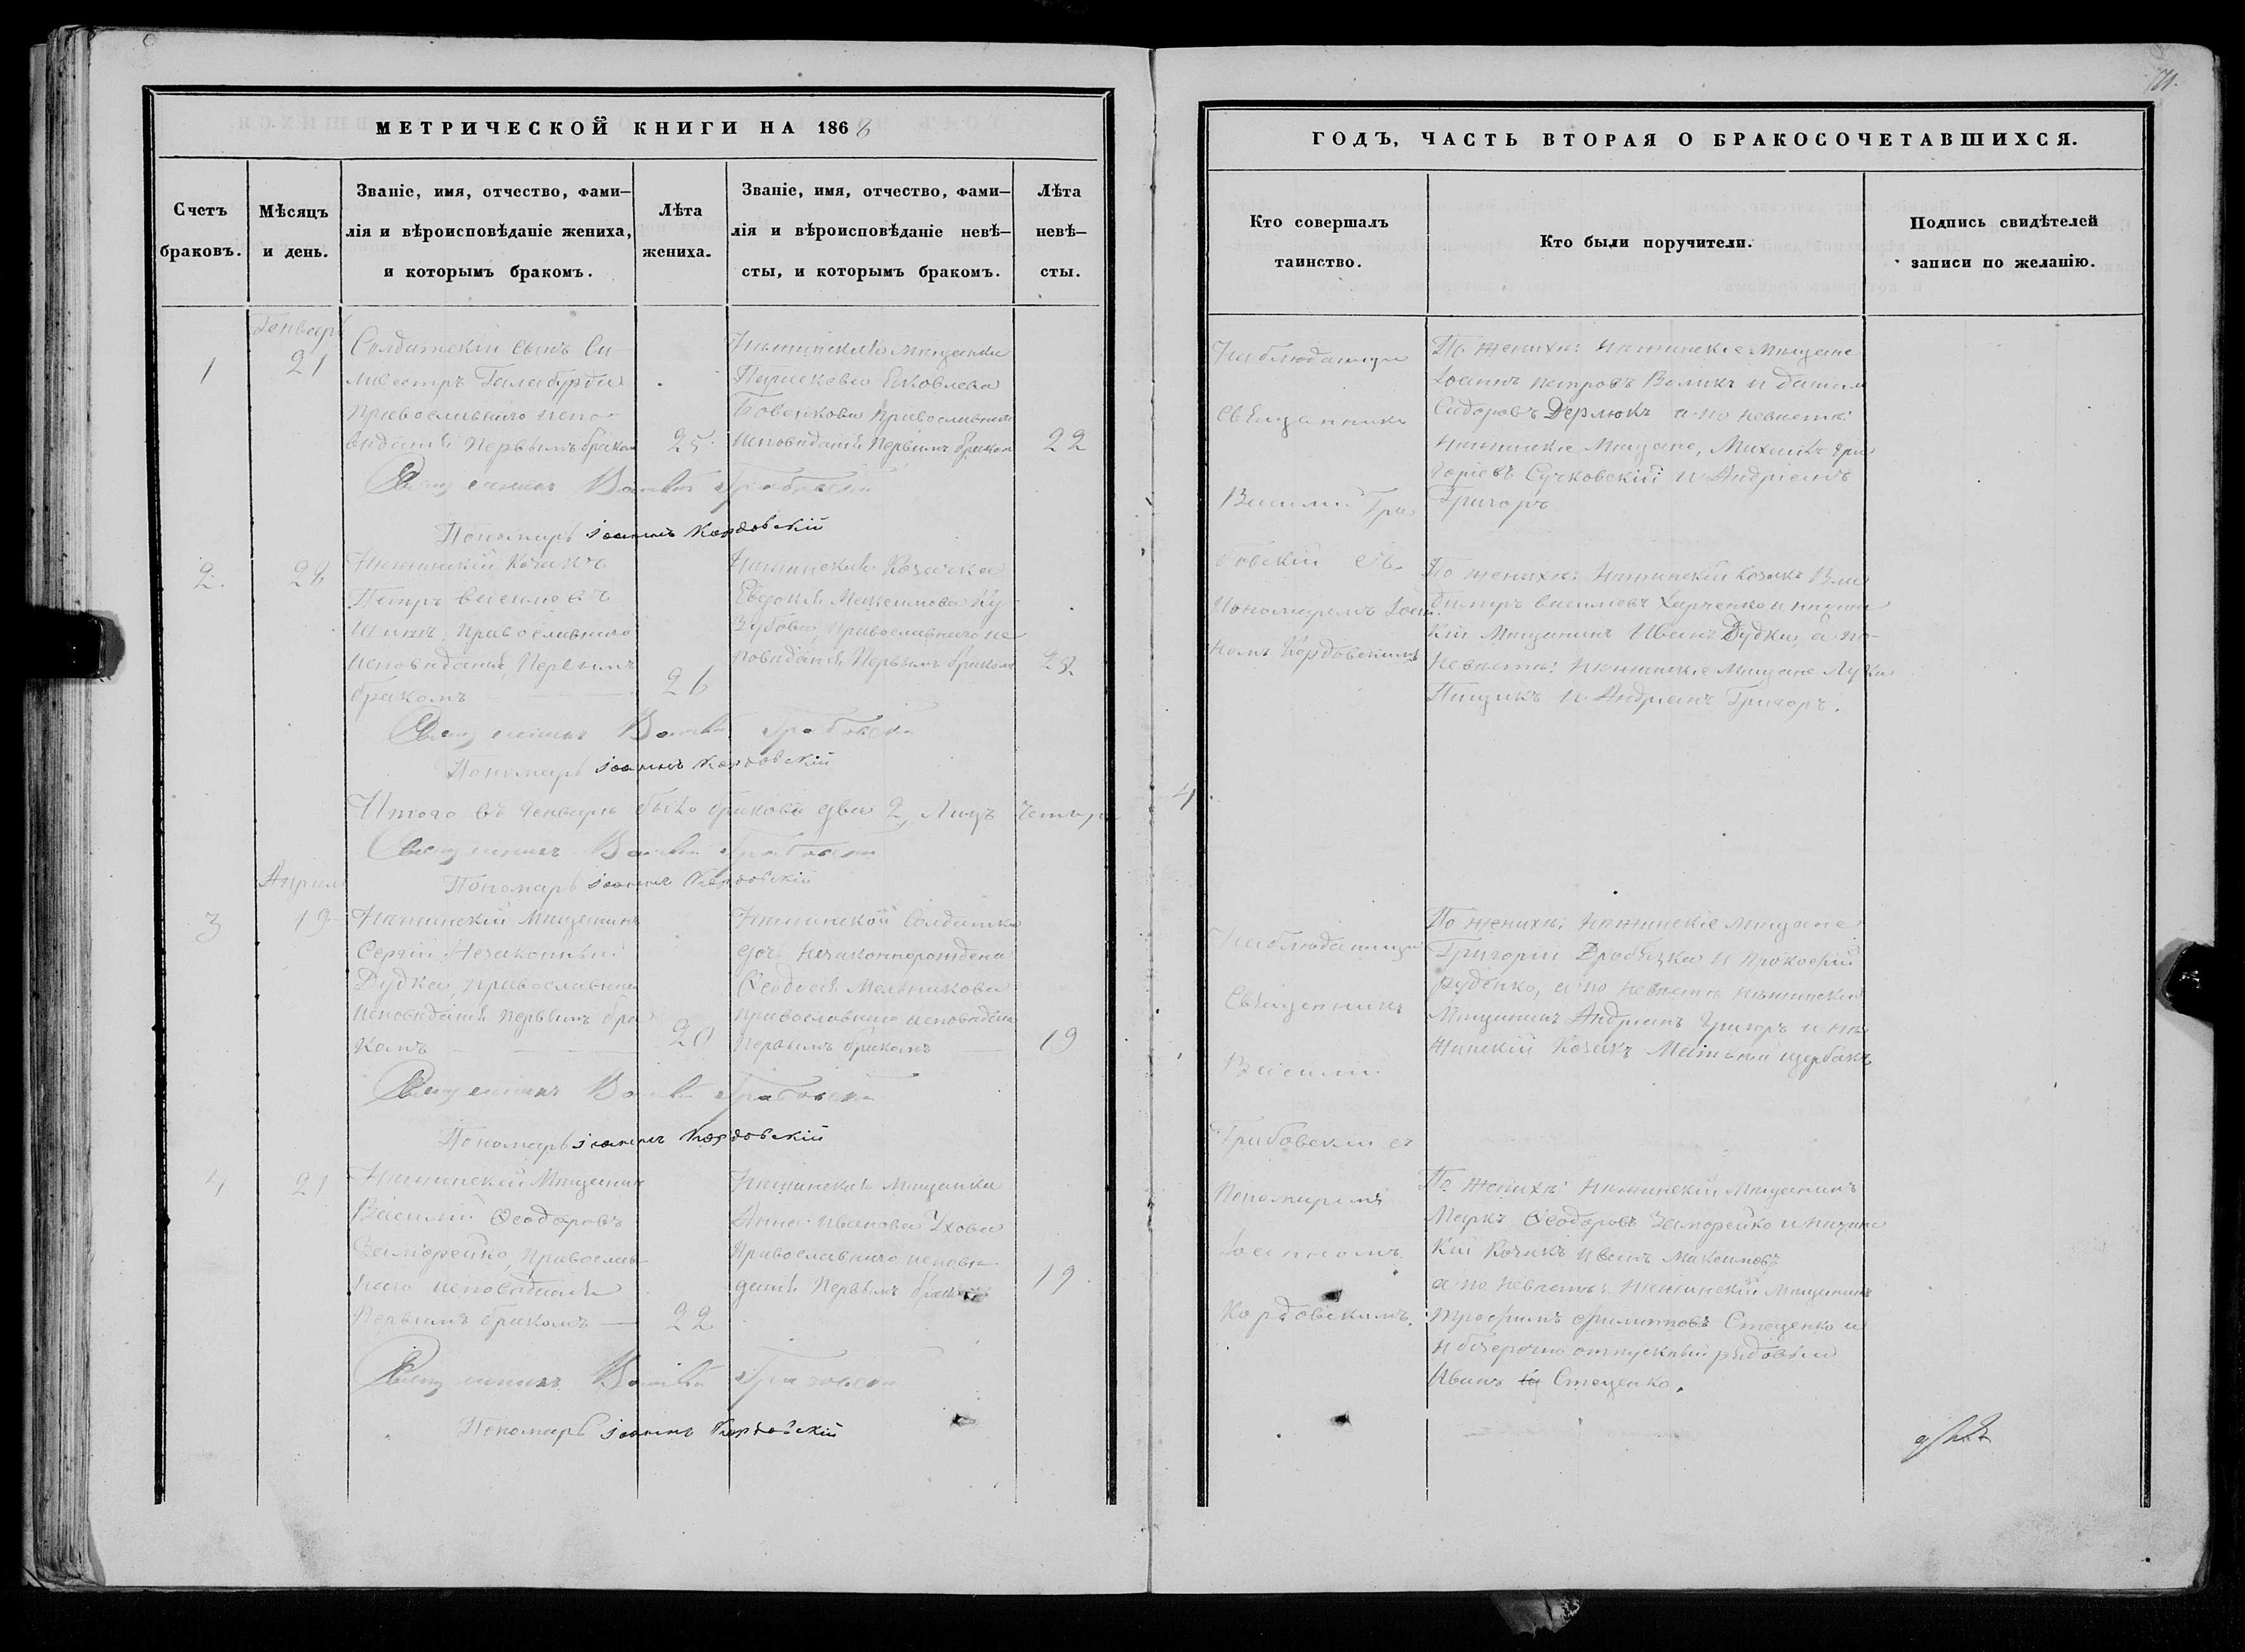 МЕТРИЧЕСКОЙ КНИГИ НА 1868
Счетъ
браковъ.
Мѣсяцъ
и день.
Званіе, имя, отчество, фами-
лія и вѣроисповѣданіе жениха,
и которымъ бракомъ.
Лѣта
жениха.
Званіе, имя, отчество, фами-
лія и вѣроисповѣданіе невѣ-
сты, и которымъ бракомъ.
Лѣта
невѣ-
сты.
Генварь
1
21
Солдатскій сынъ Си-
ливестръ Галабурда
православнаго испо-
виданія первымъ браком
25
Нѣжинская мищанка
Параскева Яковлева
православнаго
исповиданія первымъ браком
22
Священникъ Василій Грабовскій
Пономарь Іоаннъ Кордовскій
2.
28
Нѣжинскій козакъ
Петръ
православнаго
исповиданія, первымъ
бракомъ
26
Нѣжинская козачка
Евдокія Максимова Ку-
зубова, православнаго ис
повиданія первымъ браком
22
Священникъ Василій Грабовскій
Пономарь Іоаннъ Кордовскій
Итого въ генваре было браковъ два 2, лицъ четыре 4.
Священникъ Василій Грабовскій
Апрель
Пономарь Іоаннъ Кордовскій
3
19
Нѣжинскій мищанинъ
Сергій Незаконный
Дудка, православнаго
исповиданія первымъ бра
комъ
20
Нѣжинской солдатки
дочь незаконнорожденна
Ѳеодосія Мельникова
православнаго исповидания
первымъ бракомъ
19
Священникъ Василій Грабовскій
Пономарь Іоаннъ Кордовскій
4
21
Нѣжинскій мищанин
Василий Ѳеодоровъ
Заморейко, православ-
наго исповиданія
первымъ бракомъ
22
Нѣжинская мищанка
Анна Иванова
православнаго испови-
дания первымъ бракомъ
19
Священникъ Василій Грабовскій
Пономарь Іоаннъ Кордовскій
ГОДЪ, ЧАСТЬ ВТОРАЯ О БРАКОСОЧЕТАВШИХСЯ.
Кто совершалъ
таинство.
Кто были поручители.
Подпись свидѣтелей
записи по желанію.
Священникъ
Василий Гра
бовскій съ
пономаремъ Іоан
номъ Кордовскимъ
По женихѣ: нѣжинскіе мищане
Іоаннъ Петровъ Воликъ и Даніил
Сидоровъ Дерлюкъ а по невѣстѣ:
нѣжинскіе мищане, Михаилъ Гри
горіевъ Сучковскій и Андріанъ
Григоръ
По женихѣ: нѣжинскій козакъ Вла
димиръ Харченко и нѣжинс
кій мищанинъ Иванъ Дудка, а по
невѣстѣ: нѣжинскіе мищане Лука
Пищикъ и Андріанъ Григоръ.
Священникъ
Василий
Грабовский съ
пономаремъ
Іоанномъ
Кордовскимъ.
По женихѣ: нѣжинскіе мищане
Григорій Дробязка и Прокофій
Руденко, а по невѣстѣ нѣжинский
мищанинъ Андріанъ Григоръ и нѣ
жинскій козакъ Матвѣй Щербакъ
По женихѣ нѣжинскій мищанинъ
Маркъ Ѳеодоровъ Заморейко и нѣжинс
кій козакъ Иванъ Максимовъ
а по невѣстѣ: нѣжинскій мищанинъ
Трофимъ Филипповъ Стеценко и
безсрочно отпускный рядовый
Иванъ Стеценко.